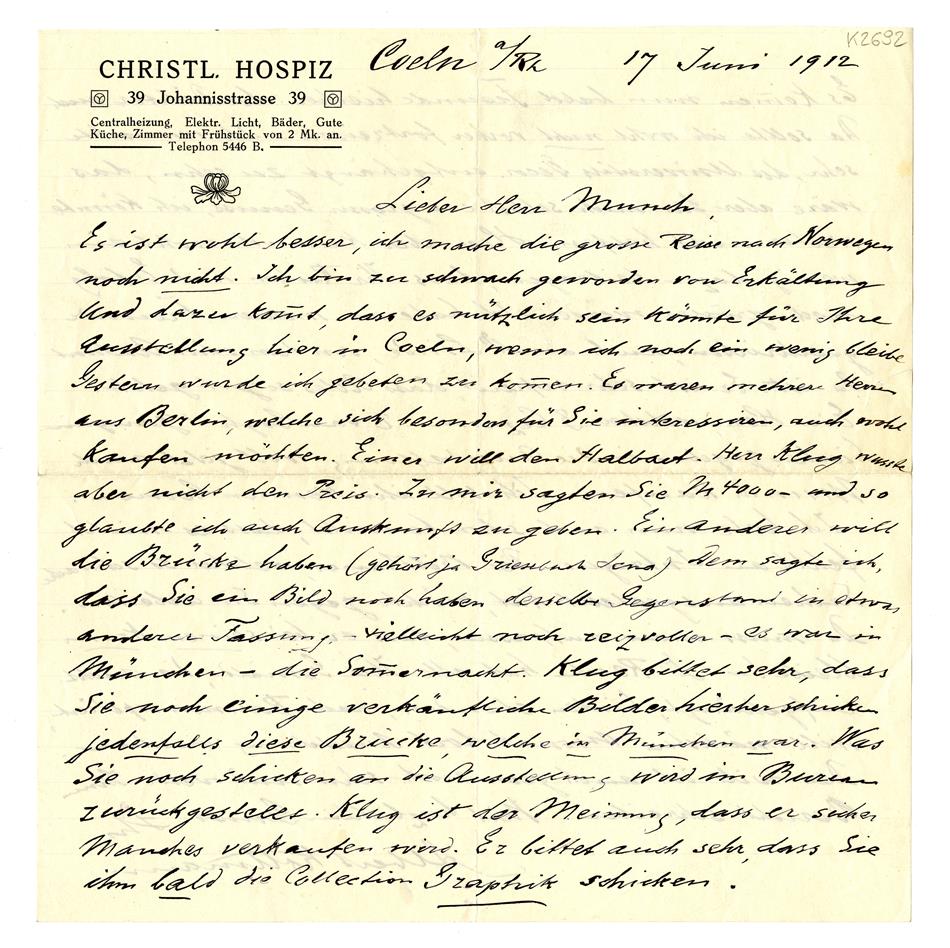 K2692
CHRISTL. HOSPIZ
39 Johannisstrasse 39
Centralheizung, Elektr. Licht, Bäder, Gute
Küche, Zimmer mit Frühstück von 2 Mk. an.
Telephon 5446 B.
Coeln a/Rh 17 Juni 1912
Lieber Herr Munch,
Es ist wohl besser, ich mache die grosse Reise nach Norwegen
noch nicht. Ich bin zu schwach geworden von Erkältung
Und dazu kom̄t, dass es nützlich sein könnte für Ihre
Ausstellung hier in Coeln, wenn ich noch ein wenig bleibe
Gestern wurde ich gebeten zu kom̄en. Es waren mehrere Herren
aus Berlin, welche sich besonders für Sie interessiren, auch wohl
kaufen möchten. Einer will den Halbact. Herr Klug wusste
aber nicht den Preis. Zu mir sagten Sie M 4000– und so
glaubte ich auch Auskunft zu geben. Ein anderer will
die Brücke haben (gehört ja Griesebach Jena) Dem sagte ich,
dass Sie ein Bild noch haben derselbe Gegenstand in etwas
anderer Fassung, – vielleicht noch reizvoller – es war in
München – die Som̄ernacht. Klug bittet sehr, dass
Sie noch einige verkäufliche Bilder hierher schicken
jedenfalls diese Brücke, welche in München war. Was
Sie noch schicken an die Ausstellung wird im Bureau
zurückgestellt. Klug ist der Meinung, dass er sicher
Manches verkaufen wird. Er bittet auch sehr, dass Sie
ihm bald die Collection Graphik schicken.